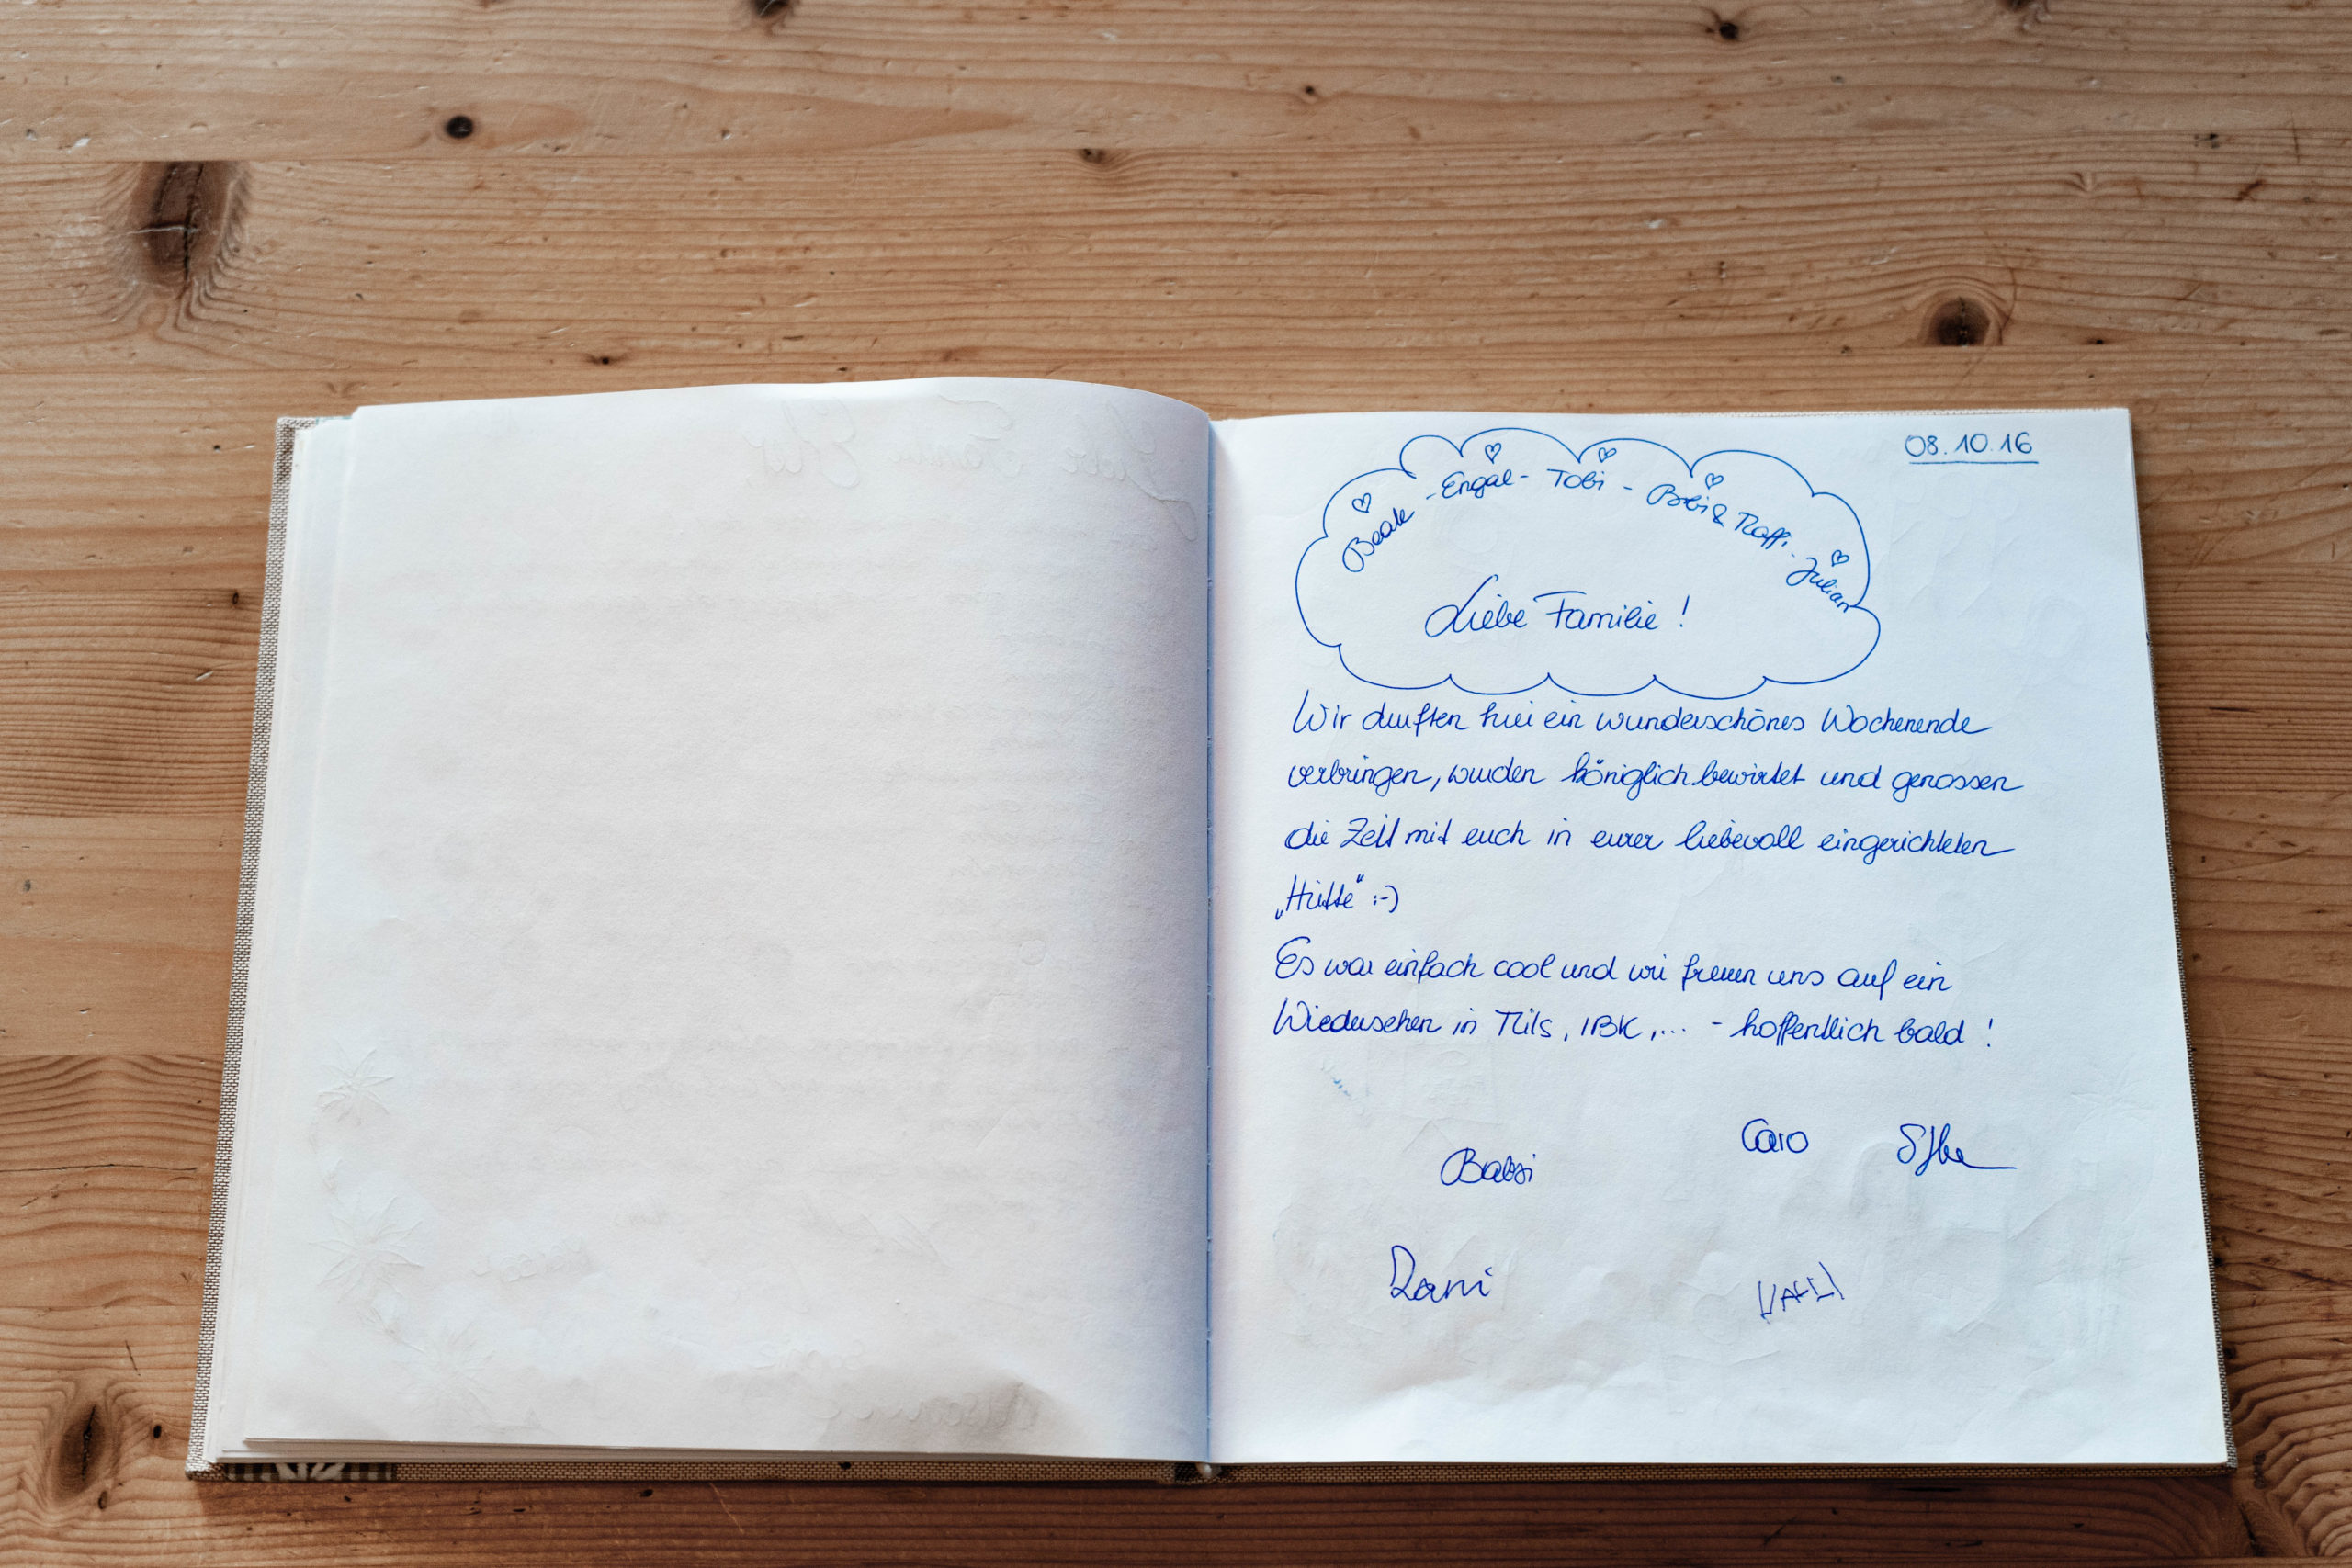 08.10.16
Beate - Engal - Tobi - & Raffi - Julian
Liebe Familie!
Wir durften hier ein wunderschönes Wochenende
verbringen, wurden königlich bewirtet und genossen
die Zeit mit euch in eurer liebevoll eingerichteten
„Hütte“ :-)
Es war einfach cool und wir freuen uns auf ein
Wiedersehen in Mils, IBK,... - hoffentlich bald!
Caro
Babsi
Dani